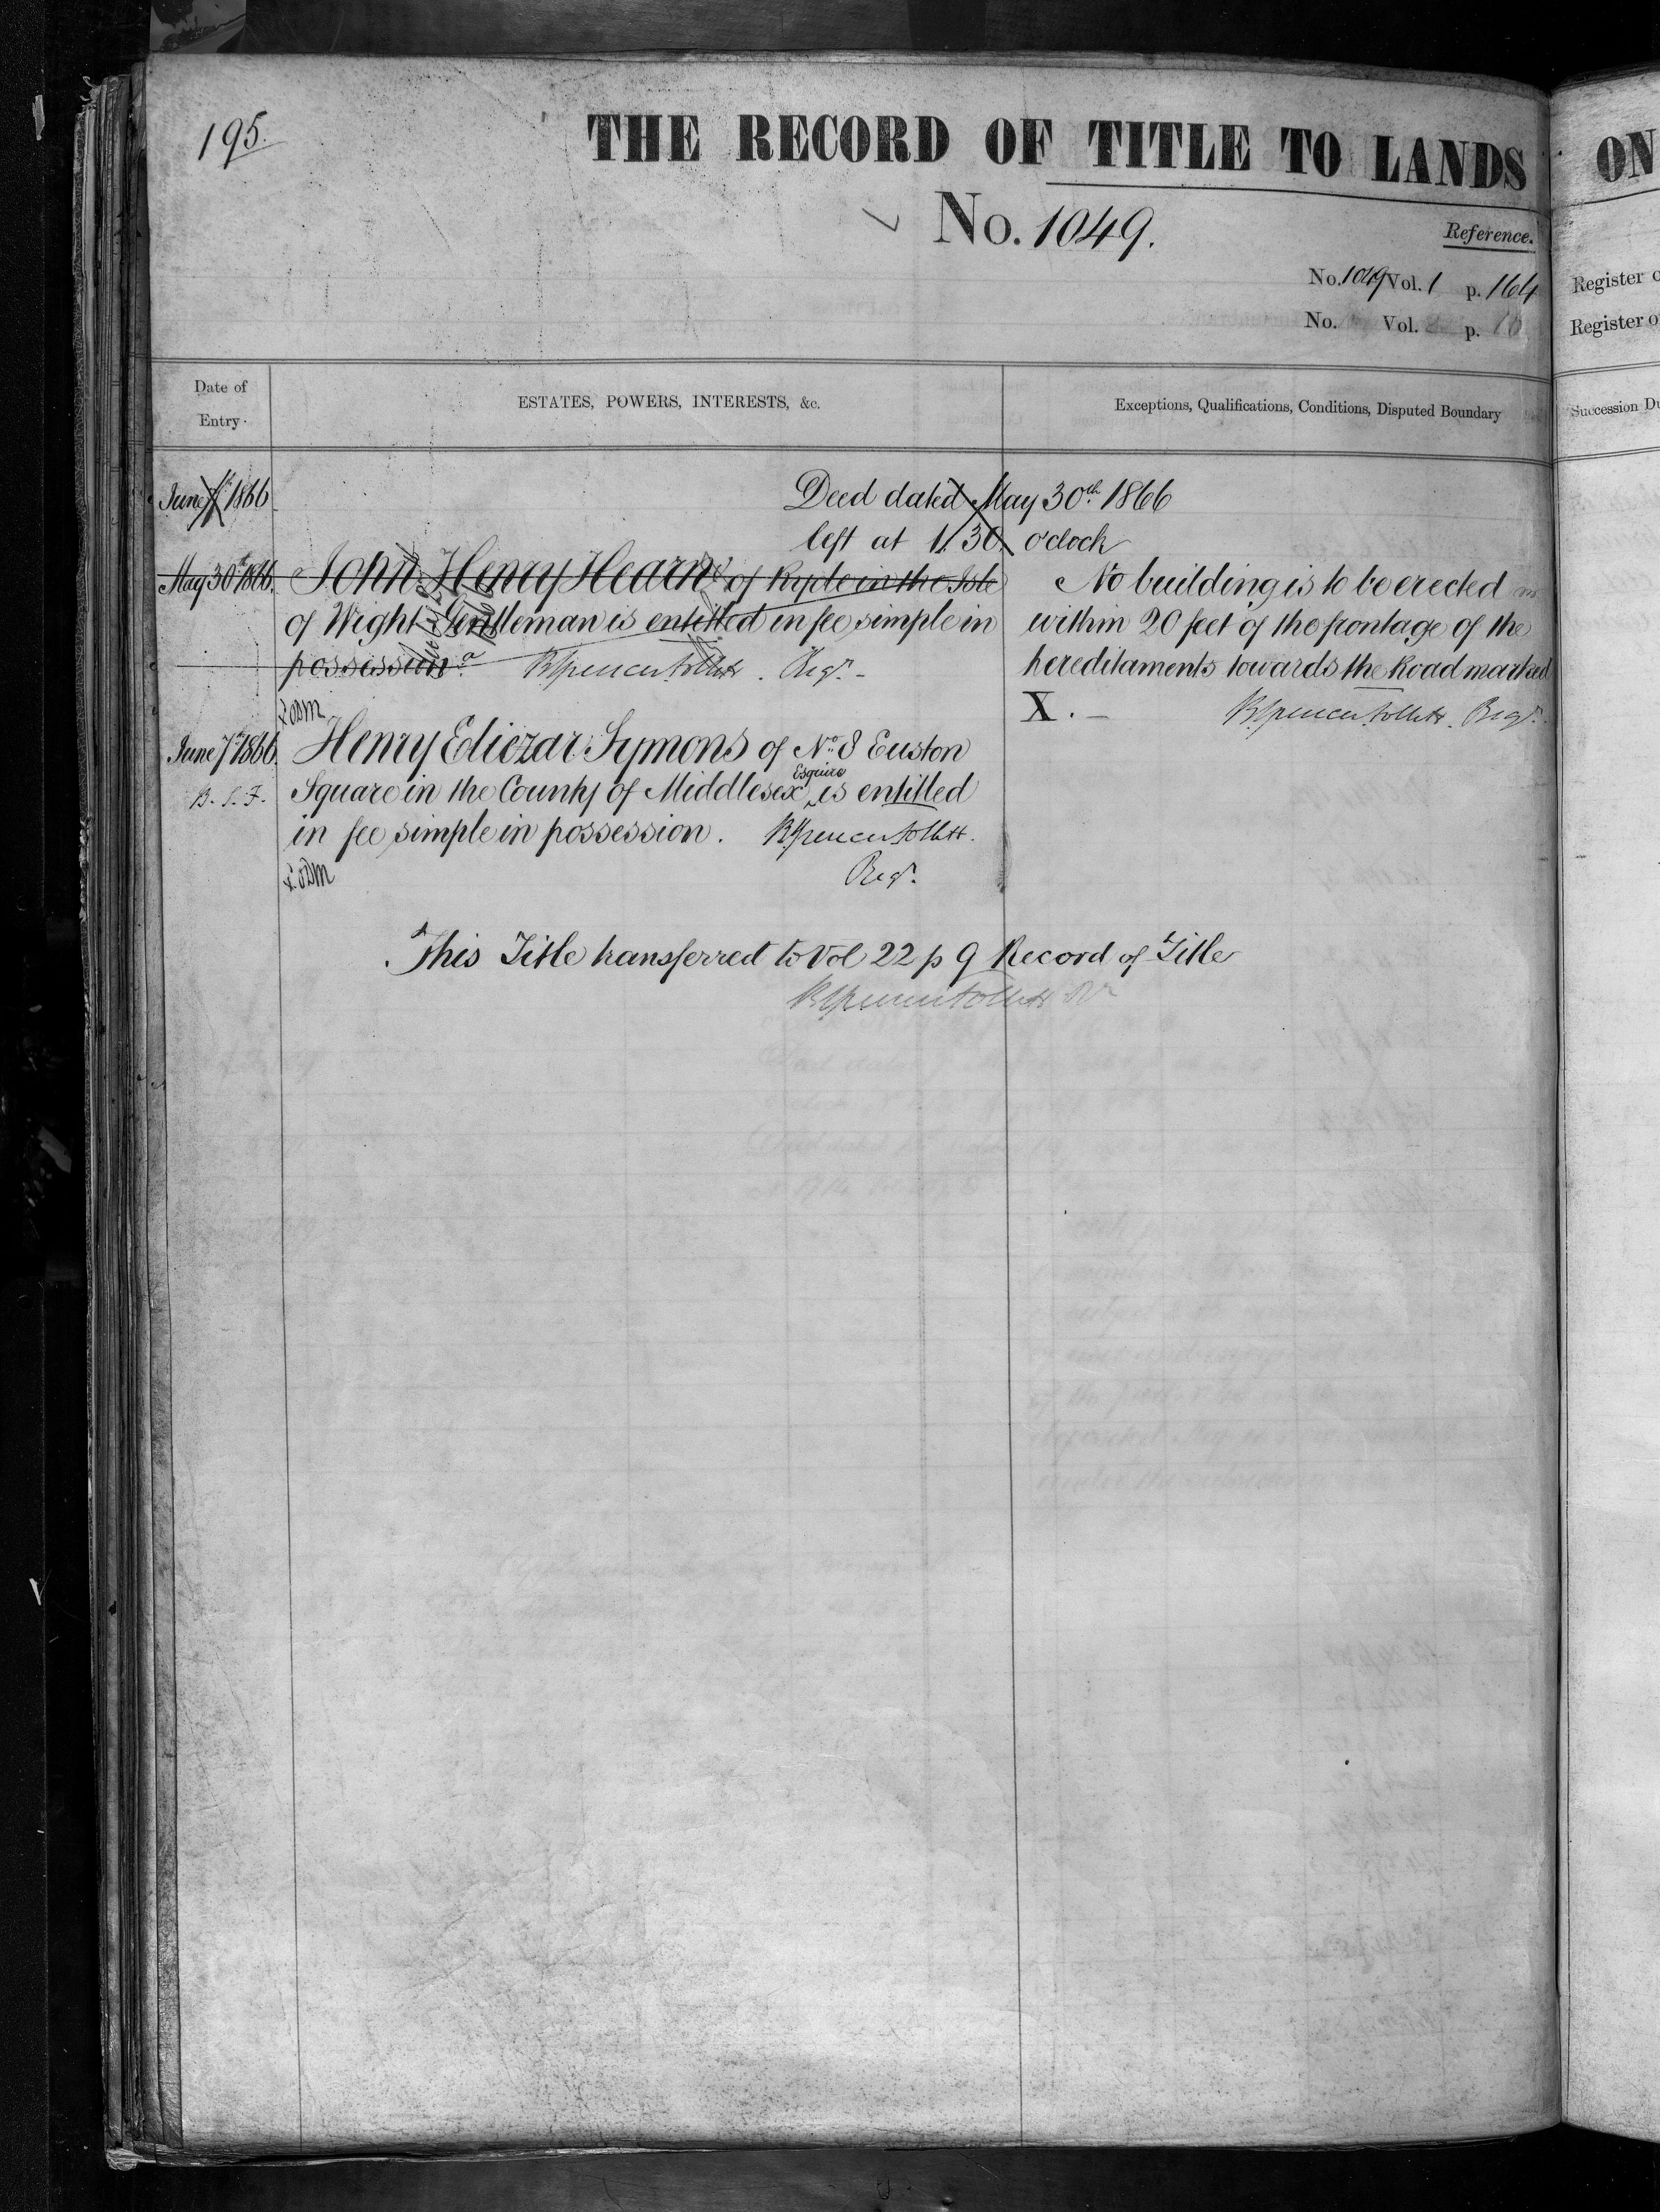 195.
THE RECORD OF TITLE TO LANDS
ON
No. 1049.
Reference.
No. 1049 Vol. 1 p. 164
No. Vol. p.
Register o
Register o
Date of
Entry.
ESTATES, POWERS, INTERESTS, &c.
Exceptions, Qualifications, Conditions, Disputed Boundary
Succession Du
June 1866
Deed dated May 30th 1866
left at 1.30 o'clock
May 30th 1866. John Henry Hearn of Ryde in the Isle
of Wight Gentleman is entitled in fee simple in
possession. Regr.
No building is to be erected
within 20 feet of the frontage of the
hereditaments towards the Road marked
X. Regr.
June 7th 1866. Henry Eliezar Symons of No. 8 Euston
Square in the County of Middlesex Esquire is entitled
in fee simple in possession.
Regr.
This Title transferred to Vol 22 p 9 Record of Title